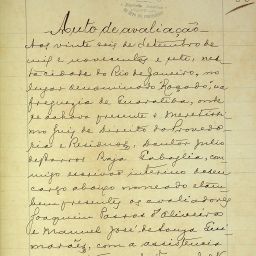 Auto de avaliação
Aos vinte seis de Setembro de
mil e novecentos e oito, nes-
ta cidade do Rio de Janeiro, no
lugar denominado Rogado, na
freguezia de Guaratiba, onde
se achava presente o Meretissi-
mo Juiz de Direito da Provedo-
ria e Residuos, Doutor Julio
de Barros Raja Gabaglia, com-
migo escrivão interino deste
cargo abaixo nomeado e tam-
bem presentes os avaliadores
Joaquim Bastos d'Oliveira
e Manuel José de Souza Gui-
marães, com a assistencia